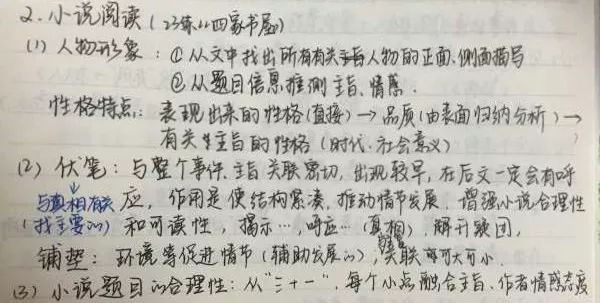 2. 小说阅读(23练11四家书屋)
(1) 人物形象:①从文中找出所有有关人物的正面、侧面描写
②从题目信息推测主旨、情感.
性格特点:表现出来的性格(直接)→品质(由表面归纳分析)→
有关主旨的性格(时代、社会意义)
(2) 伏笔:与整个事件、主旨关联密切,出现较早,在后文一定会有呼
与真相有关 应,作用是使结构紧凑,推动情节发展,增强小说合理性
(找主要的) 和可读性 揭示…,呼应…(真相)解开疑团,
铺垫:环境等促进情节(辅助发展的),关联可大可小
(3) 小说题目的合理性:从“三十一”,每个小点融合主旨、作者情感态度